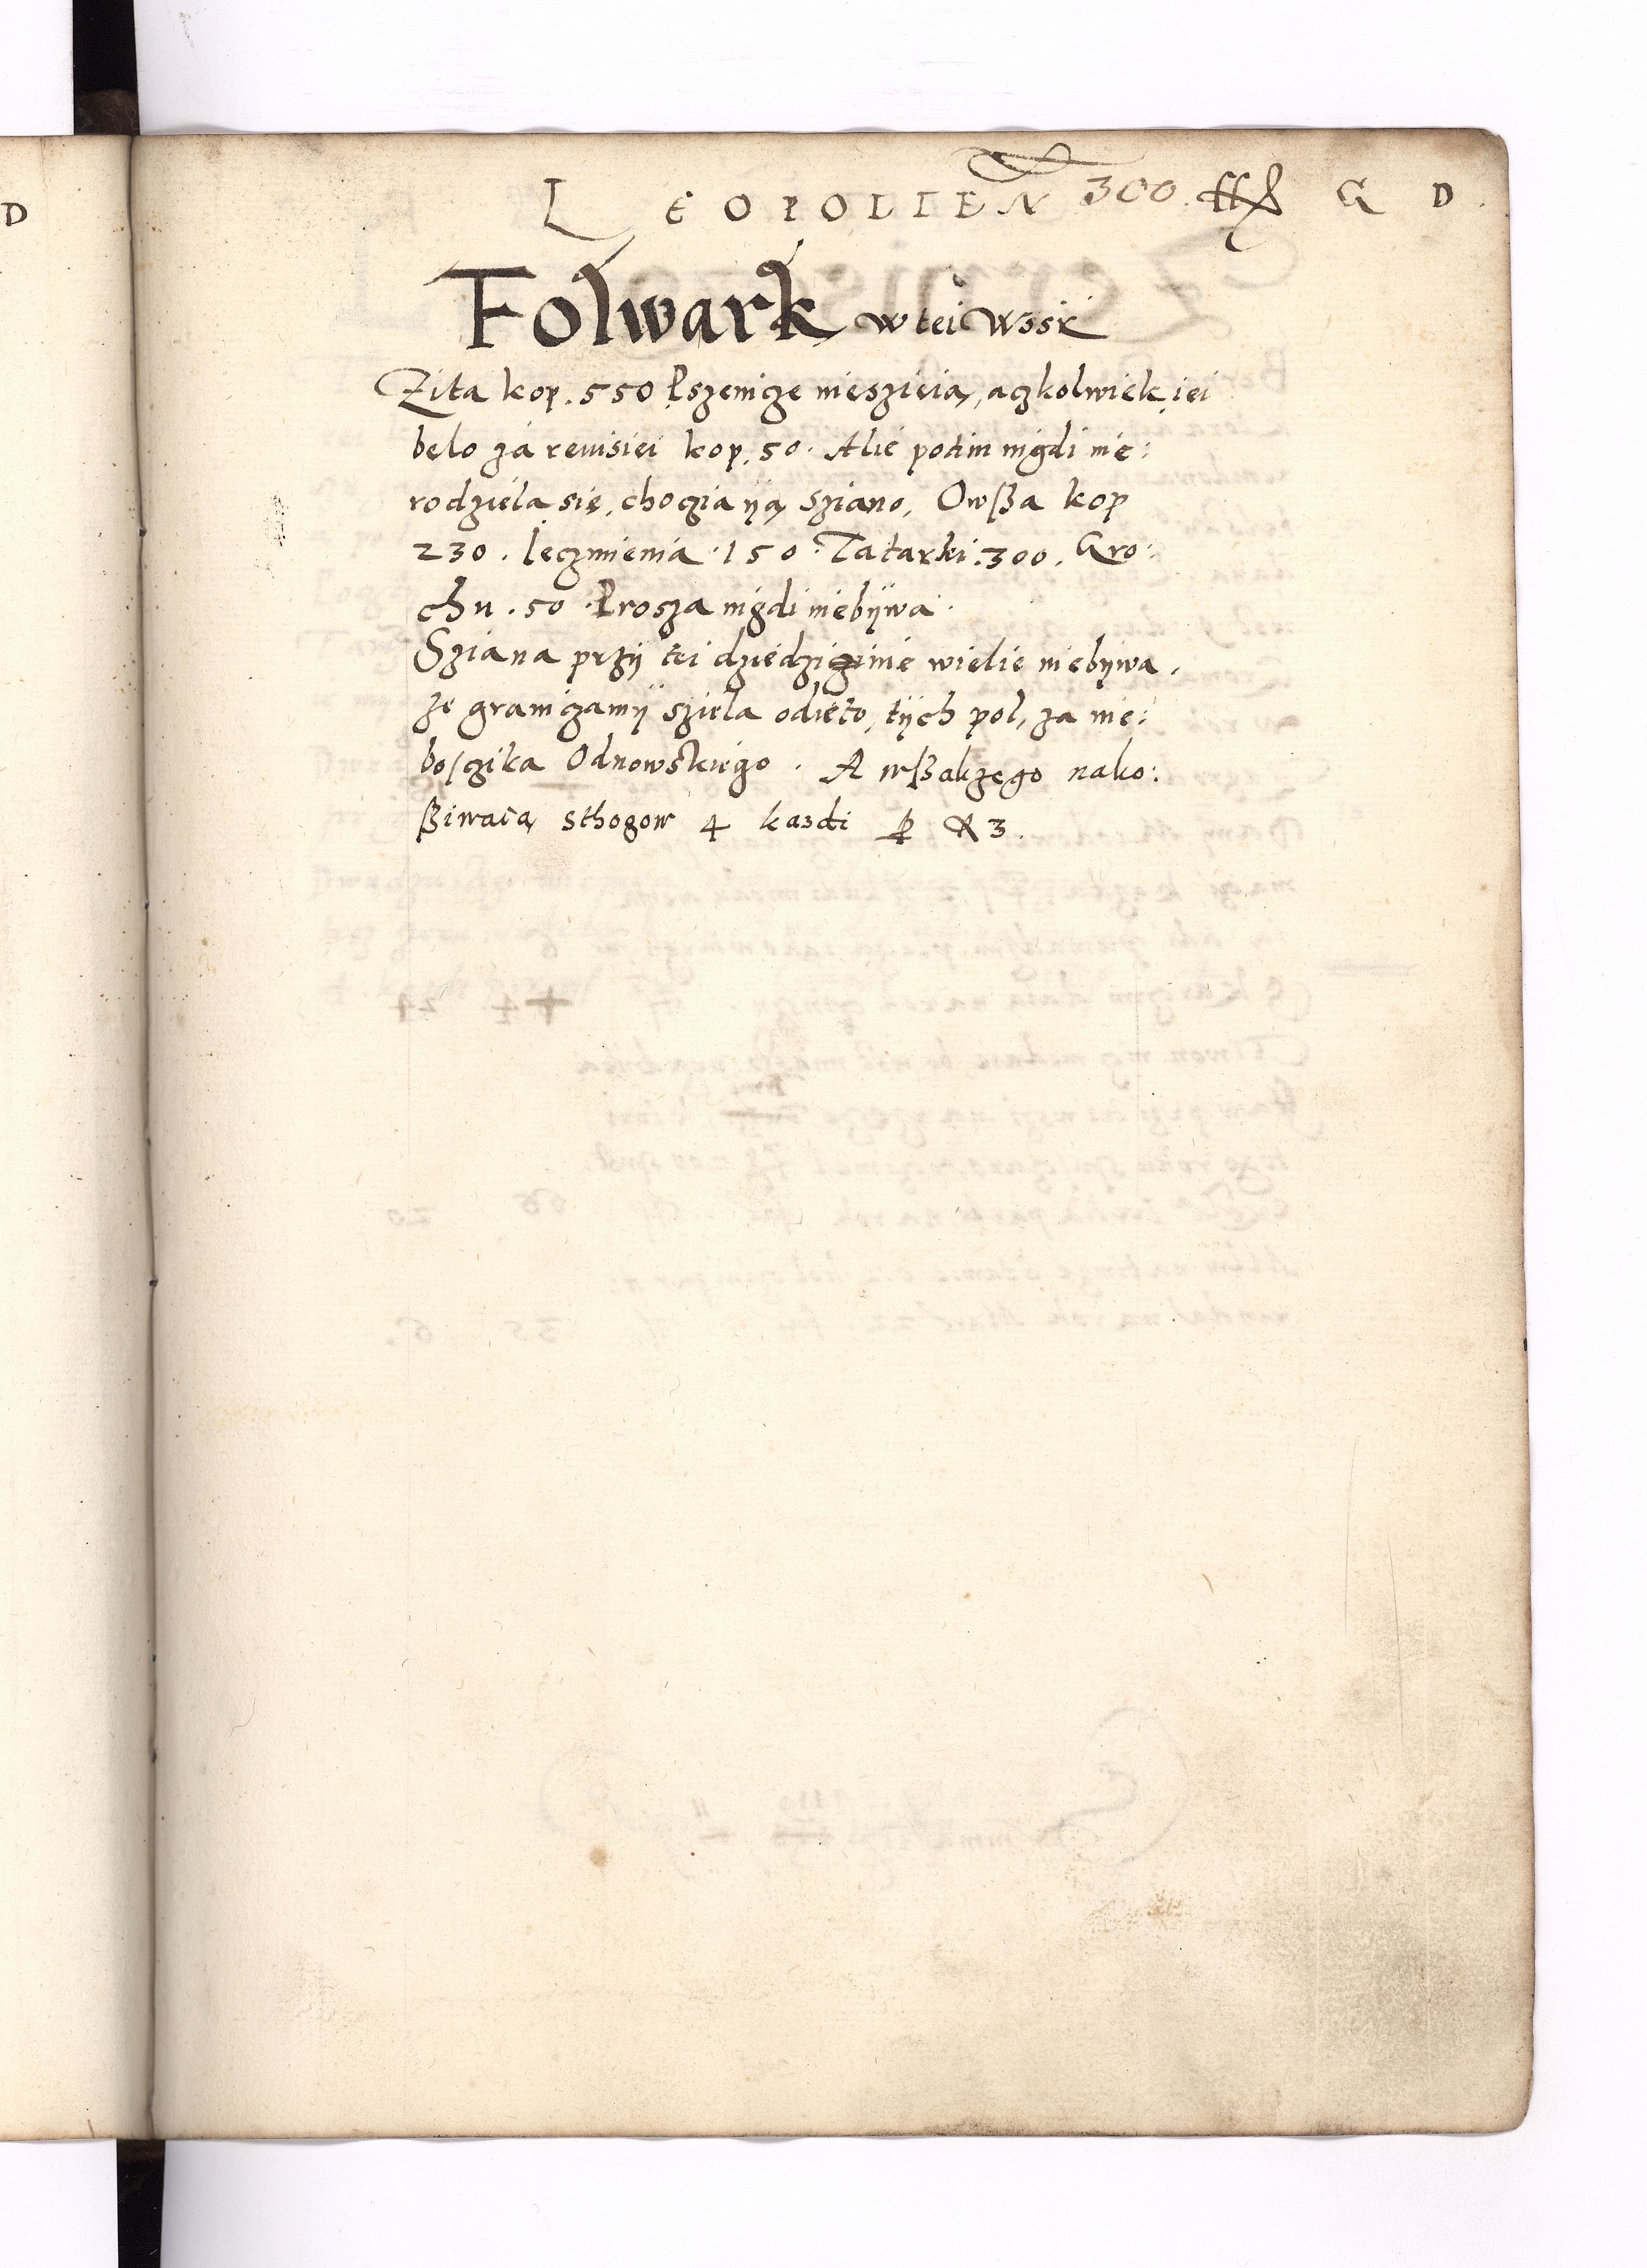 D
LEOPOLIEN 300. ff G D.
Folwark w tei wssi
Zita kop. 550 Pszenicze niesзieią, aczkolwiek iei
belo za rewisiei kop. 50. Alie potim nigdi nie:
rodziela się, chocзia ią sziano, Owßa kop
230. Ieczmienia. 150. Tatarki. 300. Gro:
chu. 50 Prosza nigdi niebÿwa.
Sziana przÿ tei dziedziczinie wielie niebÿwa,
ze graniczamÿ sziela odięto, tÿch pol, za nie:
bosczika Odnowskiego. A wßakzego nako:
ßiwaią sthogow 4 kazdi 3.